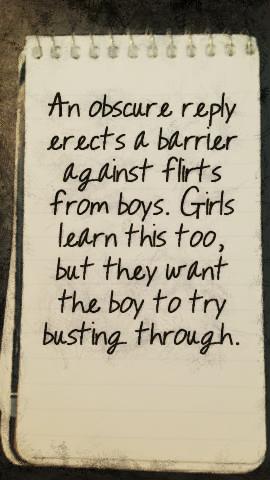 An obscure reply
erects a barrier
against flirts
from boys. Girls
learn this too,
but they want
the boy to try
busting through.